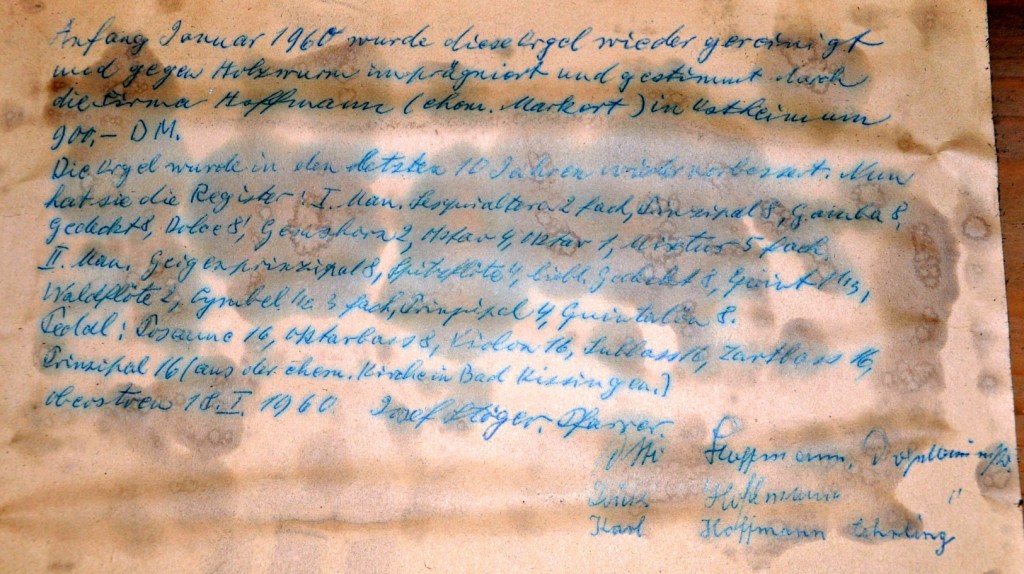 Anfang Januar 1960 wurde diese Orgel wieder gereinigt
und gegen Holzwurm imprägniert und gestimmt durch
die Firma Hoffmann (ehem. Markert) in Ostheim um
900,- DM.
Die Orgel wurde in den letzten 10 Jahren weiter verbessert. Nun
hat sie die Register: I. Man. Sesquialtera 2 fach, Prinzipal 8, Gamba 8,
Gedeckt 8, Dolce 8', Gemshorn 2, Oktav 4, Oktav 1, Mixtur 5 fach
II. Man. Geigenprinzipal 8, Spitzflöte 4, liebl. Gedeckt 8, Quint 1 1/3,
Waldflöte 2, Cymbel 3 fach, Prinzipal 4, Quintatön 8.
Pedal: Posaune 16, Oktavbass 8, Violon 16, Subbass 16, Zartbass 16,
Prinzipal 16 (aus der ehem. Kirche in Bad Kissingen.)
Oberstreu 18. I. 1960 Josef Pfarrer.
Otto Hoffmann, Orgelbaumeister
Hoffmann "
Karl Hoffmann Lehrling